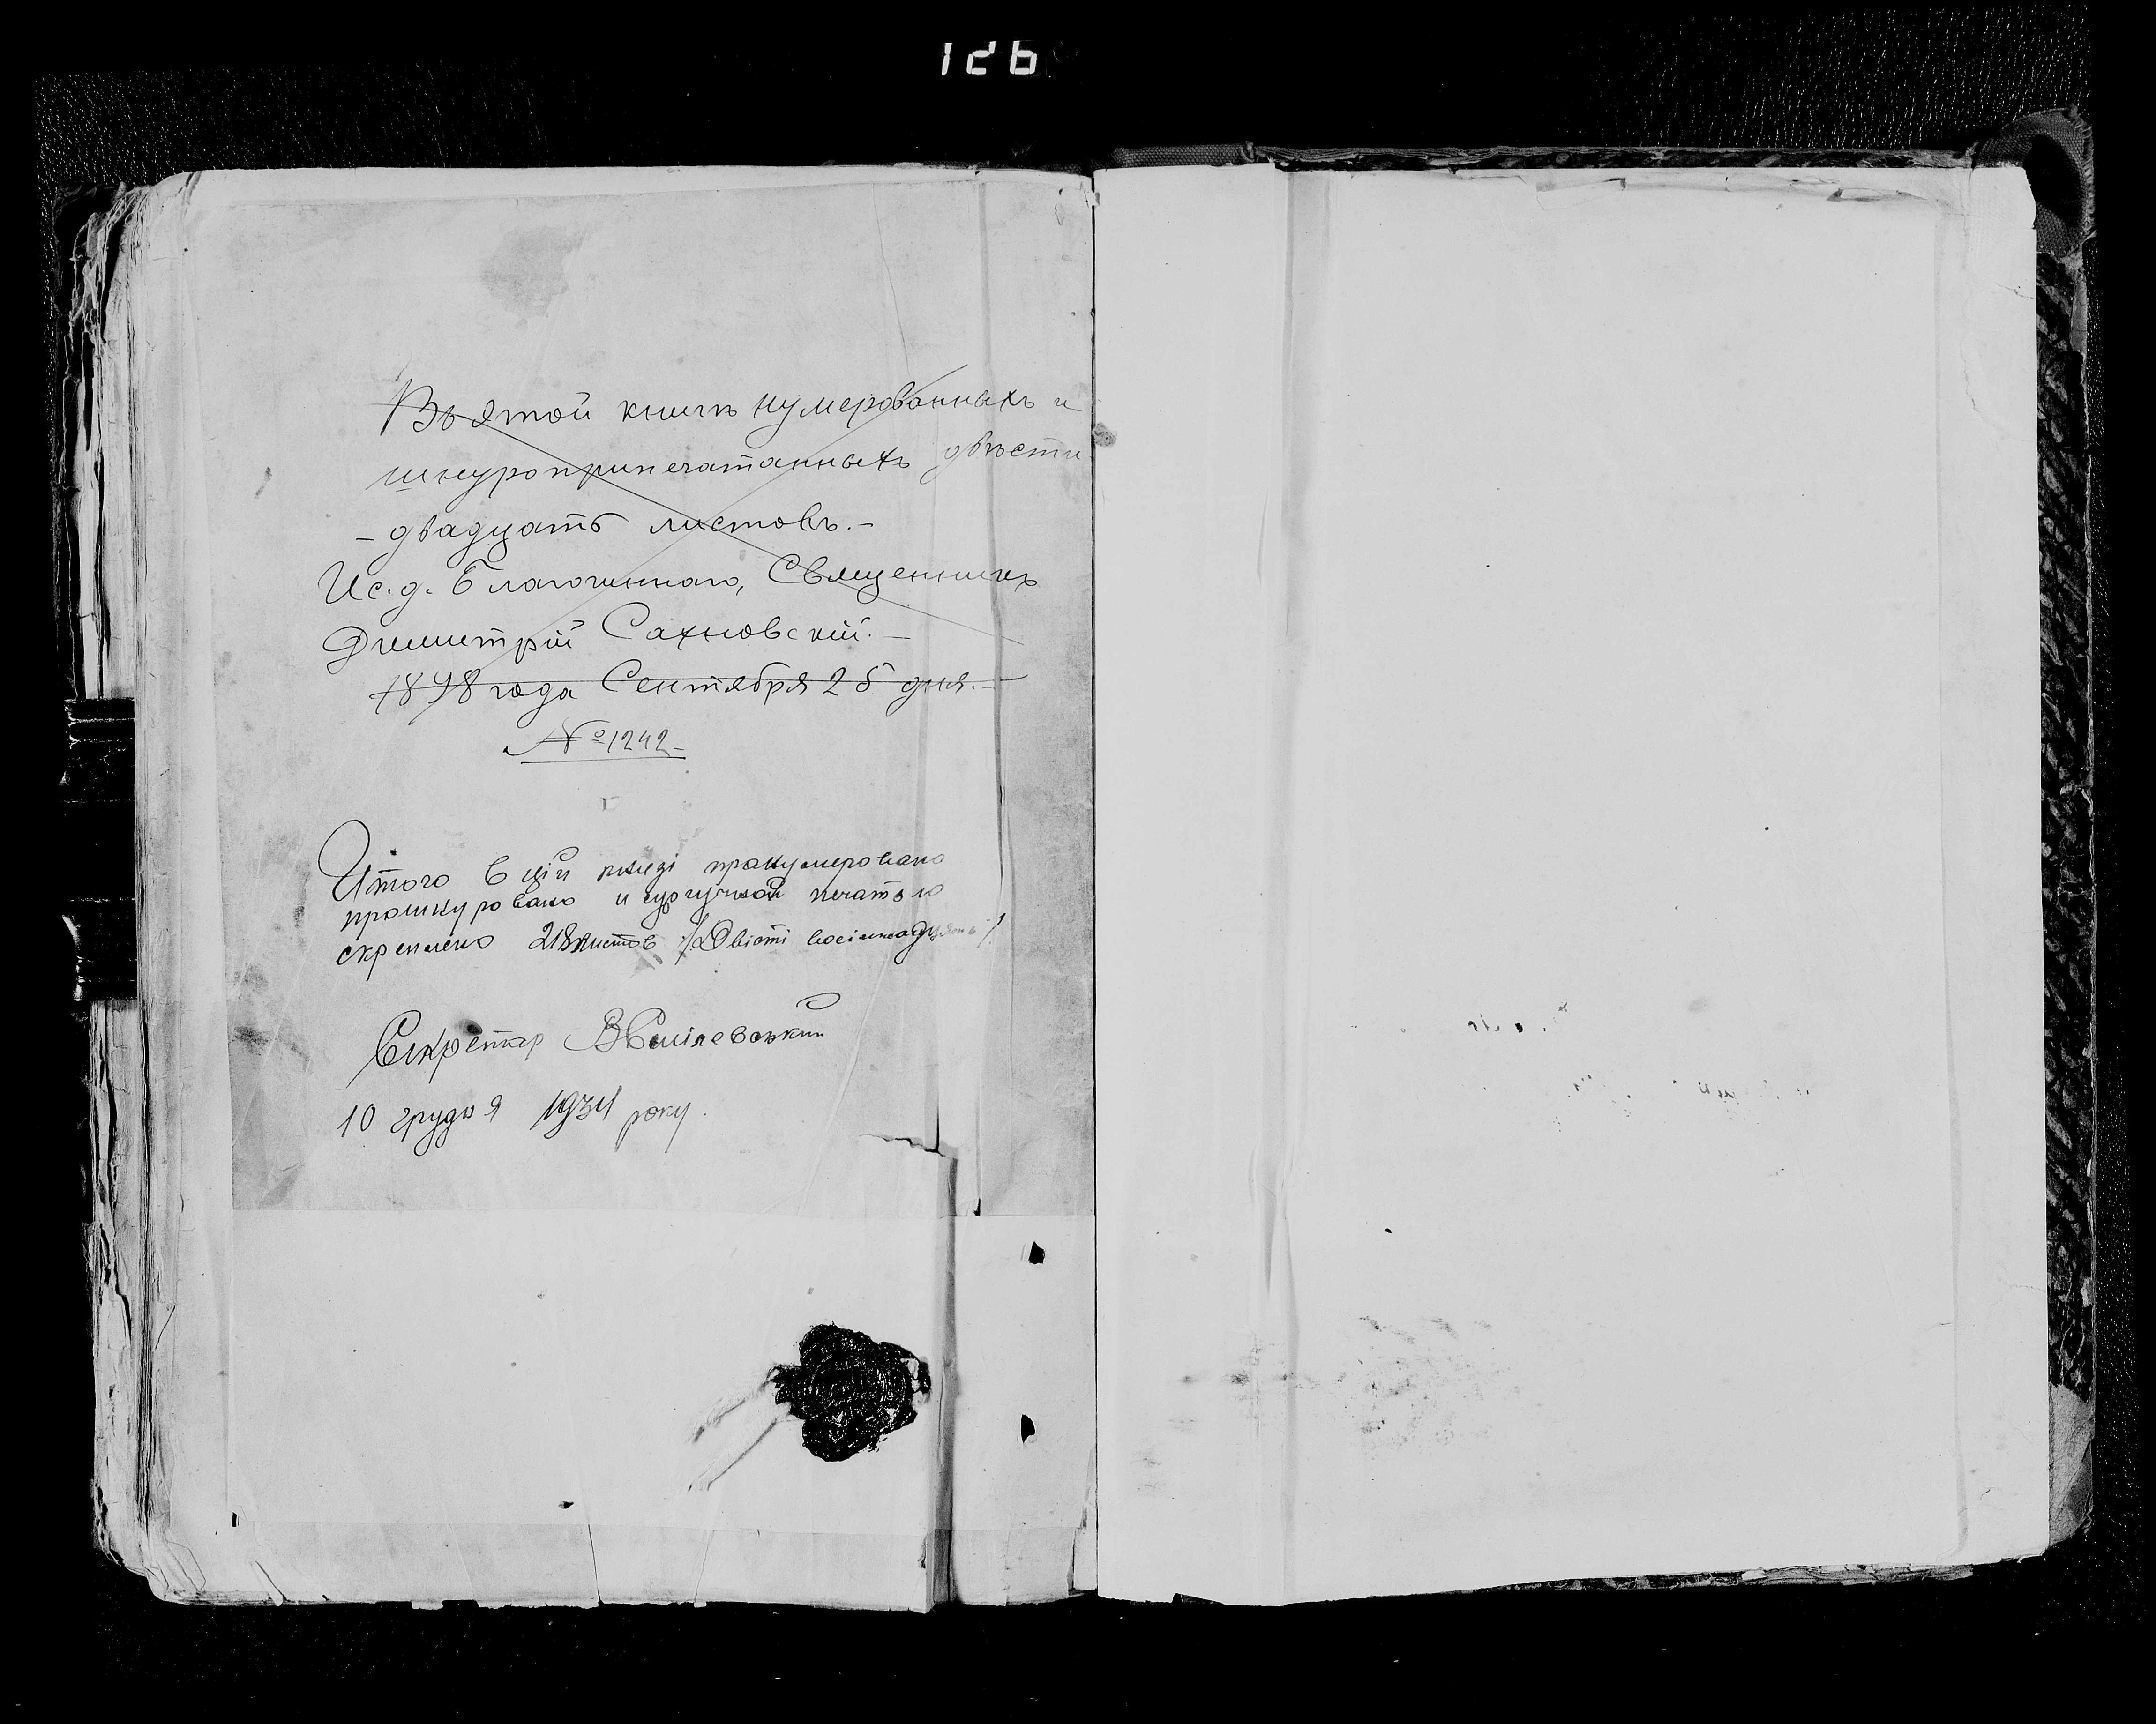 126
Въ этой книгѣ нумерованныхъ и
шнуроприпечатанныхъ двѣсти
- двадцать листовъ.-
Ис. д. Благочиннаго, Священникъ
Димитрій Сахновскій.-
1898 года Сентября 25 дня.-
№ 1242
Итого в цій книзі пранумеровано
прошнуровано и сургучной печатью
скреплено 218 листов /Двісті вісімнадцять/
Секретар
10 грудня 1934 року.